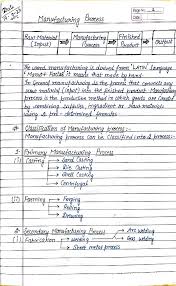 Manufacturing Process
Page No.
Date
Raw Material → Manufacturing → Finished → Output
(Input) Process Product
The word manufacturing is derived from "LATIN" language
made by hand.
In General manufacturing is the process that converts any
raw material (input) into the finished product. Manufacturing
process is the production method in which goods are created
by combining supplies, ingredient or raw
using a pre-determined
Classification of Manufacturing process:-
Manufacturing process can be classified into process:-
1. Primary Manufacturing Process
(i) Casting → Sand Casting
→ Die Casting
→ Shell Casting
→ Centrifugal
(ii) Forming → Forging
→ Rolling
→ Drawing
2. Secondary Manufacturing Process → Arc welding
(i) Fabrication → Welding → Gas welding
→ Sheet metal process